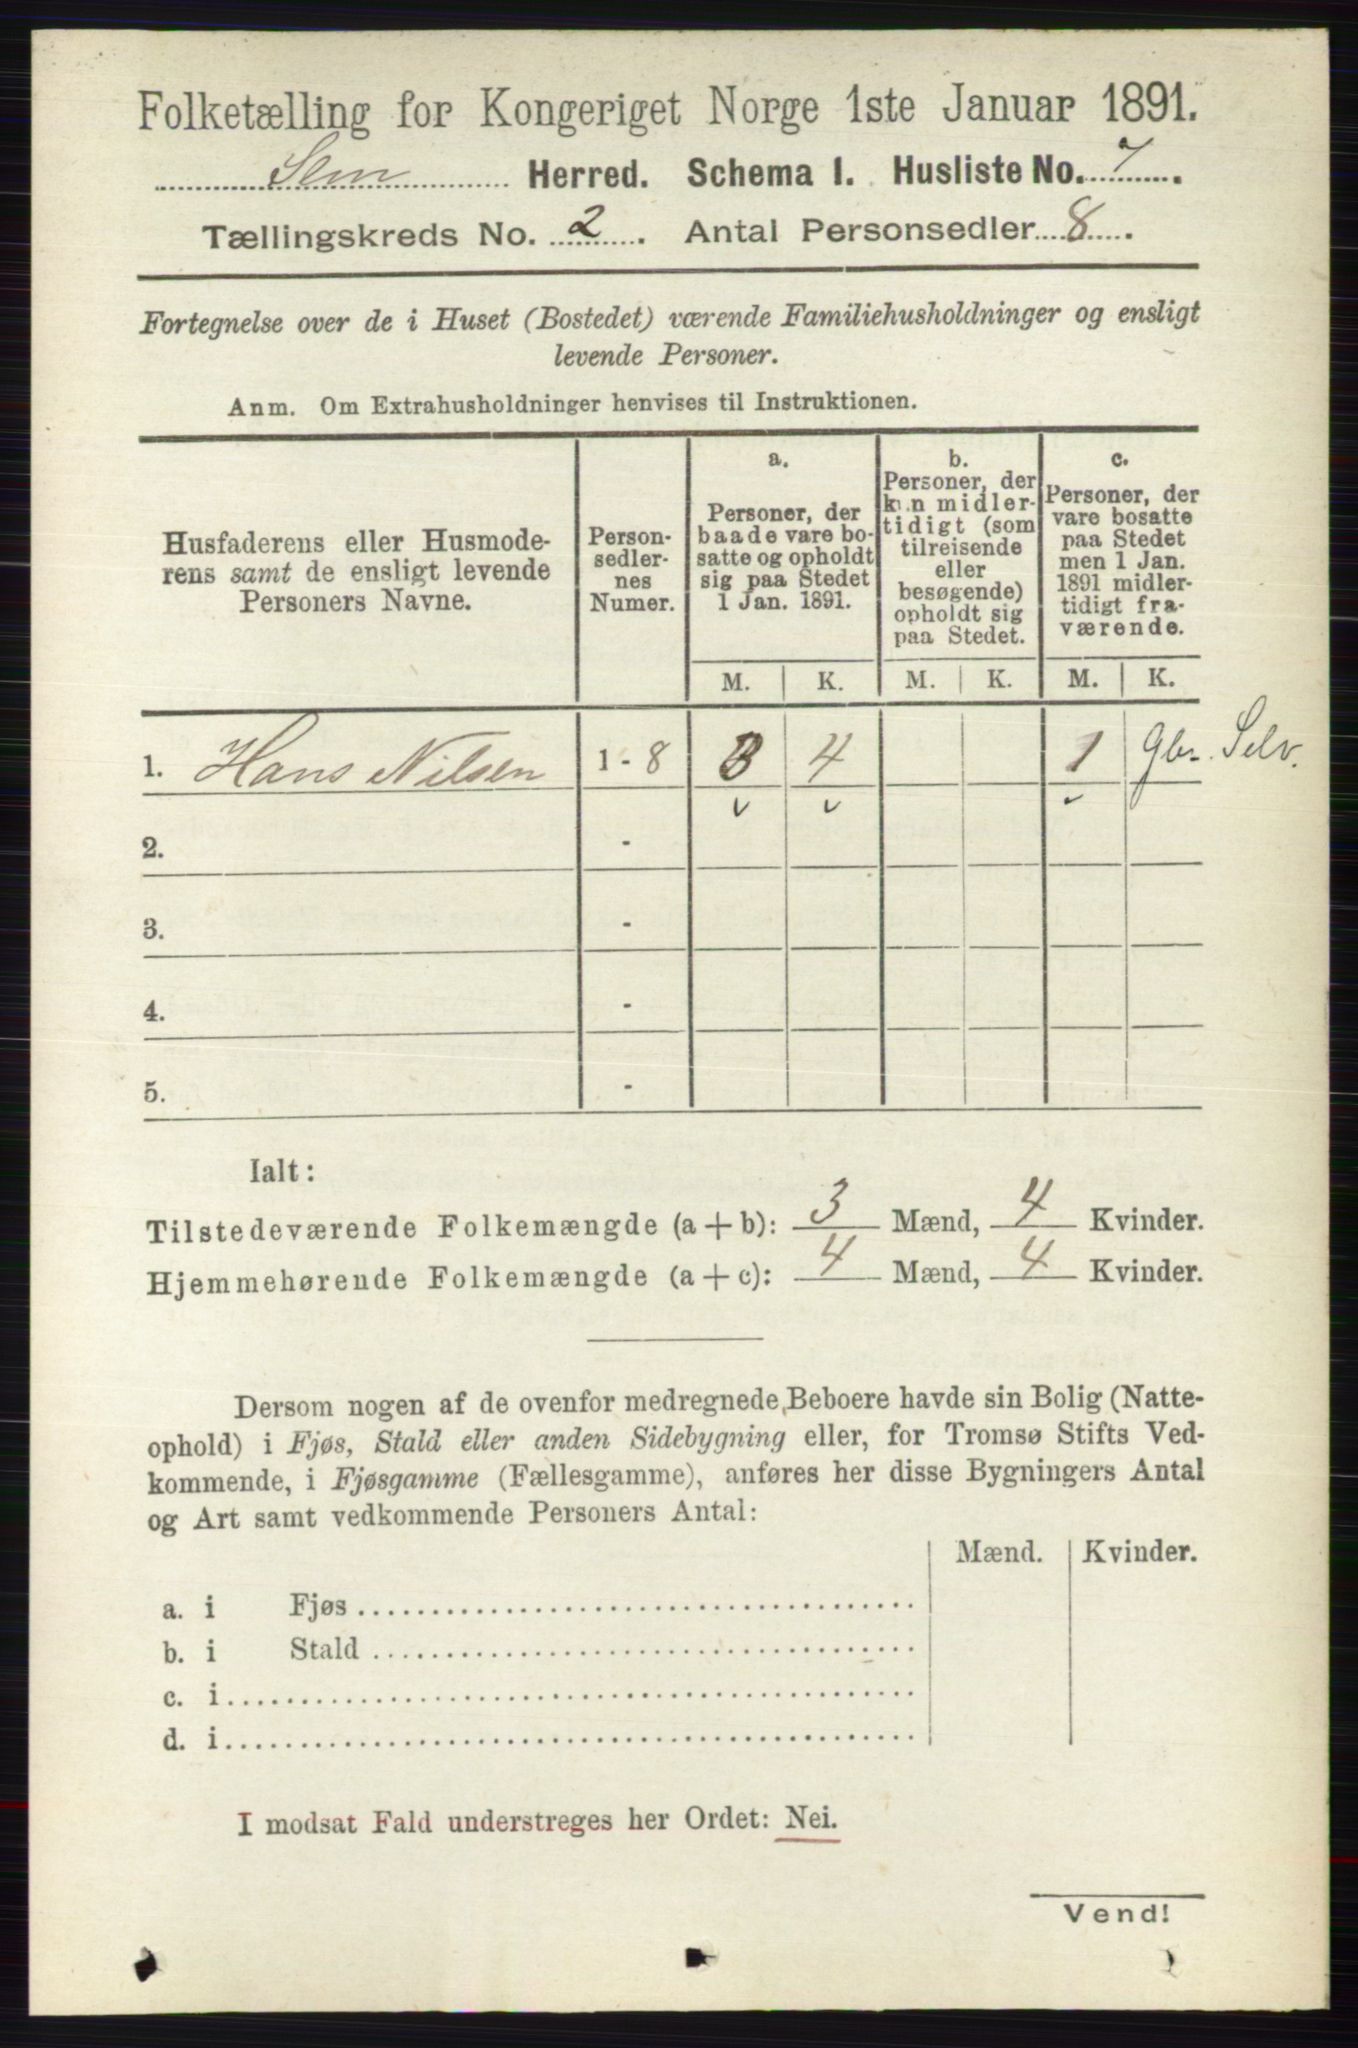 Folketælling for Kongeriget Norge 1ste Januar 1891.
Sem Herred. Schema 1. Husliste No. 7.
Tællingskreds No. 2. Antal Personsedler 8.
Fortegnelse over de i Huset (Bostedet) værende Familiehusholdninger og ensligt
levende Personer.
Anm. Om Extrahusholdninger henvises til Instruktionen.
Husfaderens eller Husmode-
rens samt de ensligt levende
Personers Navne.
Person-
sedler-
nes
Numer.
a.
Personer, der
baade vare bo-
satte og opholdt
sig paa Stedet
1 Jan. 1891.
b.
Personer, der
kun midler-
tidigt (som
tilreisende
eller
besøgende)
opholdt sig
paa Stedet.
c.
Personer, der
vare bosatte
paa Stedet
men 1 Jan.
1891 midler-
tidigt fra-
værende.
M. K. M. K. M. K.
1. Hans Nilsen 1 - 8 3 4 1 Gbr. Selv.
2. -
3. -
4. -
5. -
Ialt:
Tilstedeværende Folkemængde (a + b): 3 Mænd, 4 Kvinder.
Hjemmehørende Folkemængde (a + c): 4 Mænd, 4 Kvinder.
Dersom nogen af de ovenfor medregnede Beboere havde sin Bolig (Natte-
ophold) i Fjøs, Stald eller anden Sidebygning eller, for Tromsø Stifts Ved-
kommende, i Fjøsgamme (Fællesgamme), anføres her disse Bygningers Antal
og Art samt vedkommende Personers Antal:
Mænd. Kvinder.
a. i Fjøs
b. i Stald
c. i
d. i
I modsat Fald understreges her Ordet: Nei.
Vend!